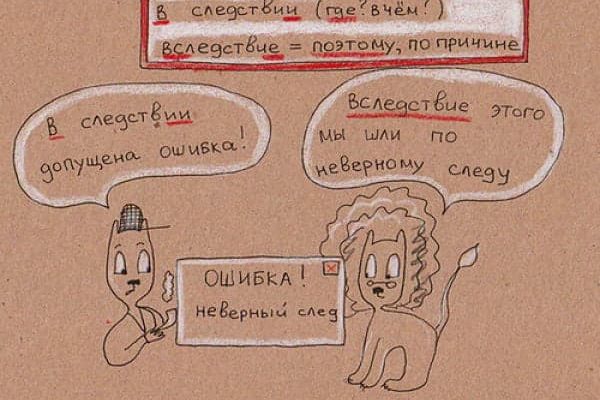 в следствии (где? в чём?)
вследствие = поэтому, по причине
В следствии
допущена ошибка!
Вследствие этого
мы шли по
неверному следу
ОШИБКА!
неверный след